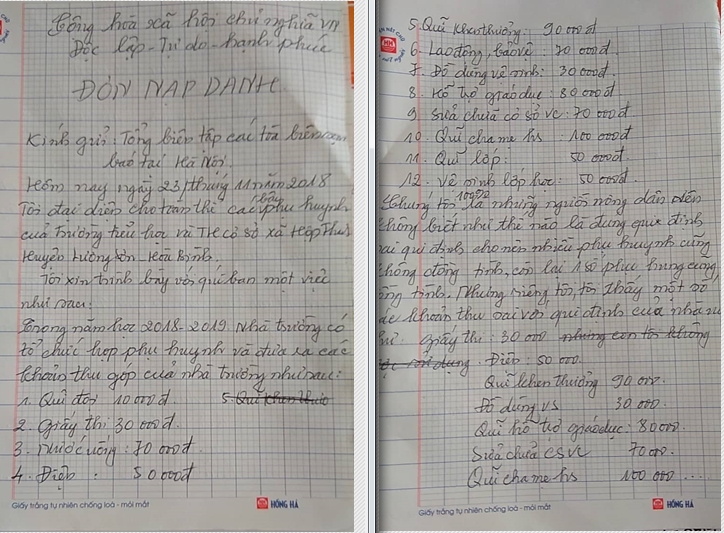 Cộng hòa xã hội chủ nghĩa VN
Độc lập - Tự do - hạnh phúc
ĐƠN NẠP DANH
Kính gửi: Tổng biên tập các tòa biên soạn
báo tại Hà Nội.
Hôm nay ngày 23/ tháng 11 năm 2018
Tôi đại diện cho toàn thể các bậc phu huynh
của Trường tiểu học và TH cơ sở xã Hợp Thanh
Huyện Lương Sơn - Hòa Bình.
Tôi xin trình bày với quí ban một việc
như sau:
Trong năm học 2018-2019 Nhà trường có
tổ chức họp phu huynh và đưa ra các
khoản thu góp của nhà trường như sau:
1. Quĩ đội 10 000đ 5. Quĩ khen thưở
2. Giấy thi 30 000đ.
3. nước uống: 70 000đ
4. Điện : 50 000đ
Giấy trắng tự nhiên chống loá - mỏi mắt
HH HỒNG HÀ
5. Quĩ khen thưởng: 90 000đ
6. Lao động, bảo vệ: 70 000đ.
7. Đồ dùng vệ sinh: 30 000đ.
8. Hỗ trợ giáo dục: 80 000đ.
9. Sửa chữa cơ sở vc: 70 000đ
10. Quĩ cha mẹ hs: 100 000đ
11. Quĩ lớp: 50 000đ.
12. Vệ sinh lớp học: 50 000đ.
Chúng tôi là những người nông dân nên
không biết như thế nào là đúng qui định
sai qui định cho nên nhiều phu huynh cũng
không đồng tình, còn lại 1 số phu hung cũng
đồng tình. Nhưng riêng tôi, tôi thấy một số
các khoản thu sai với qui định của nhà nư
như: giấy thi: 30 000 nhưng con tôi không
sử dụng. Điện: 50 000.
Quĩ khen thưởng 90 000.
Đồ dùng vs 30 000.
Quĩ hỗ trợ giáo dục: 80 000
Sửa chữa CSVC 70 000.
Quĩ cha mẹ hs 100 000 ...
Giấy trắng tự nhiên chống loá - mỏi mắt
HH HỒNG HÀ